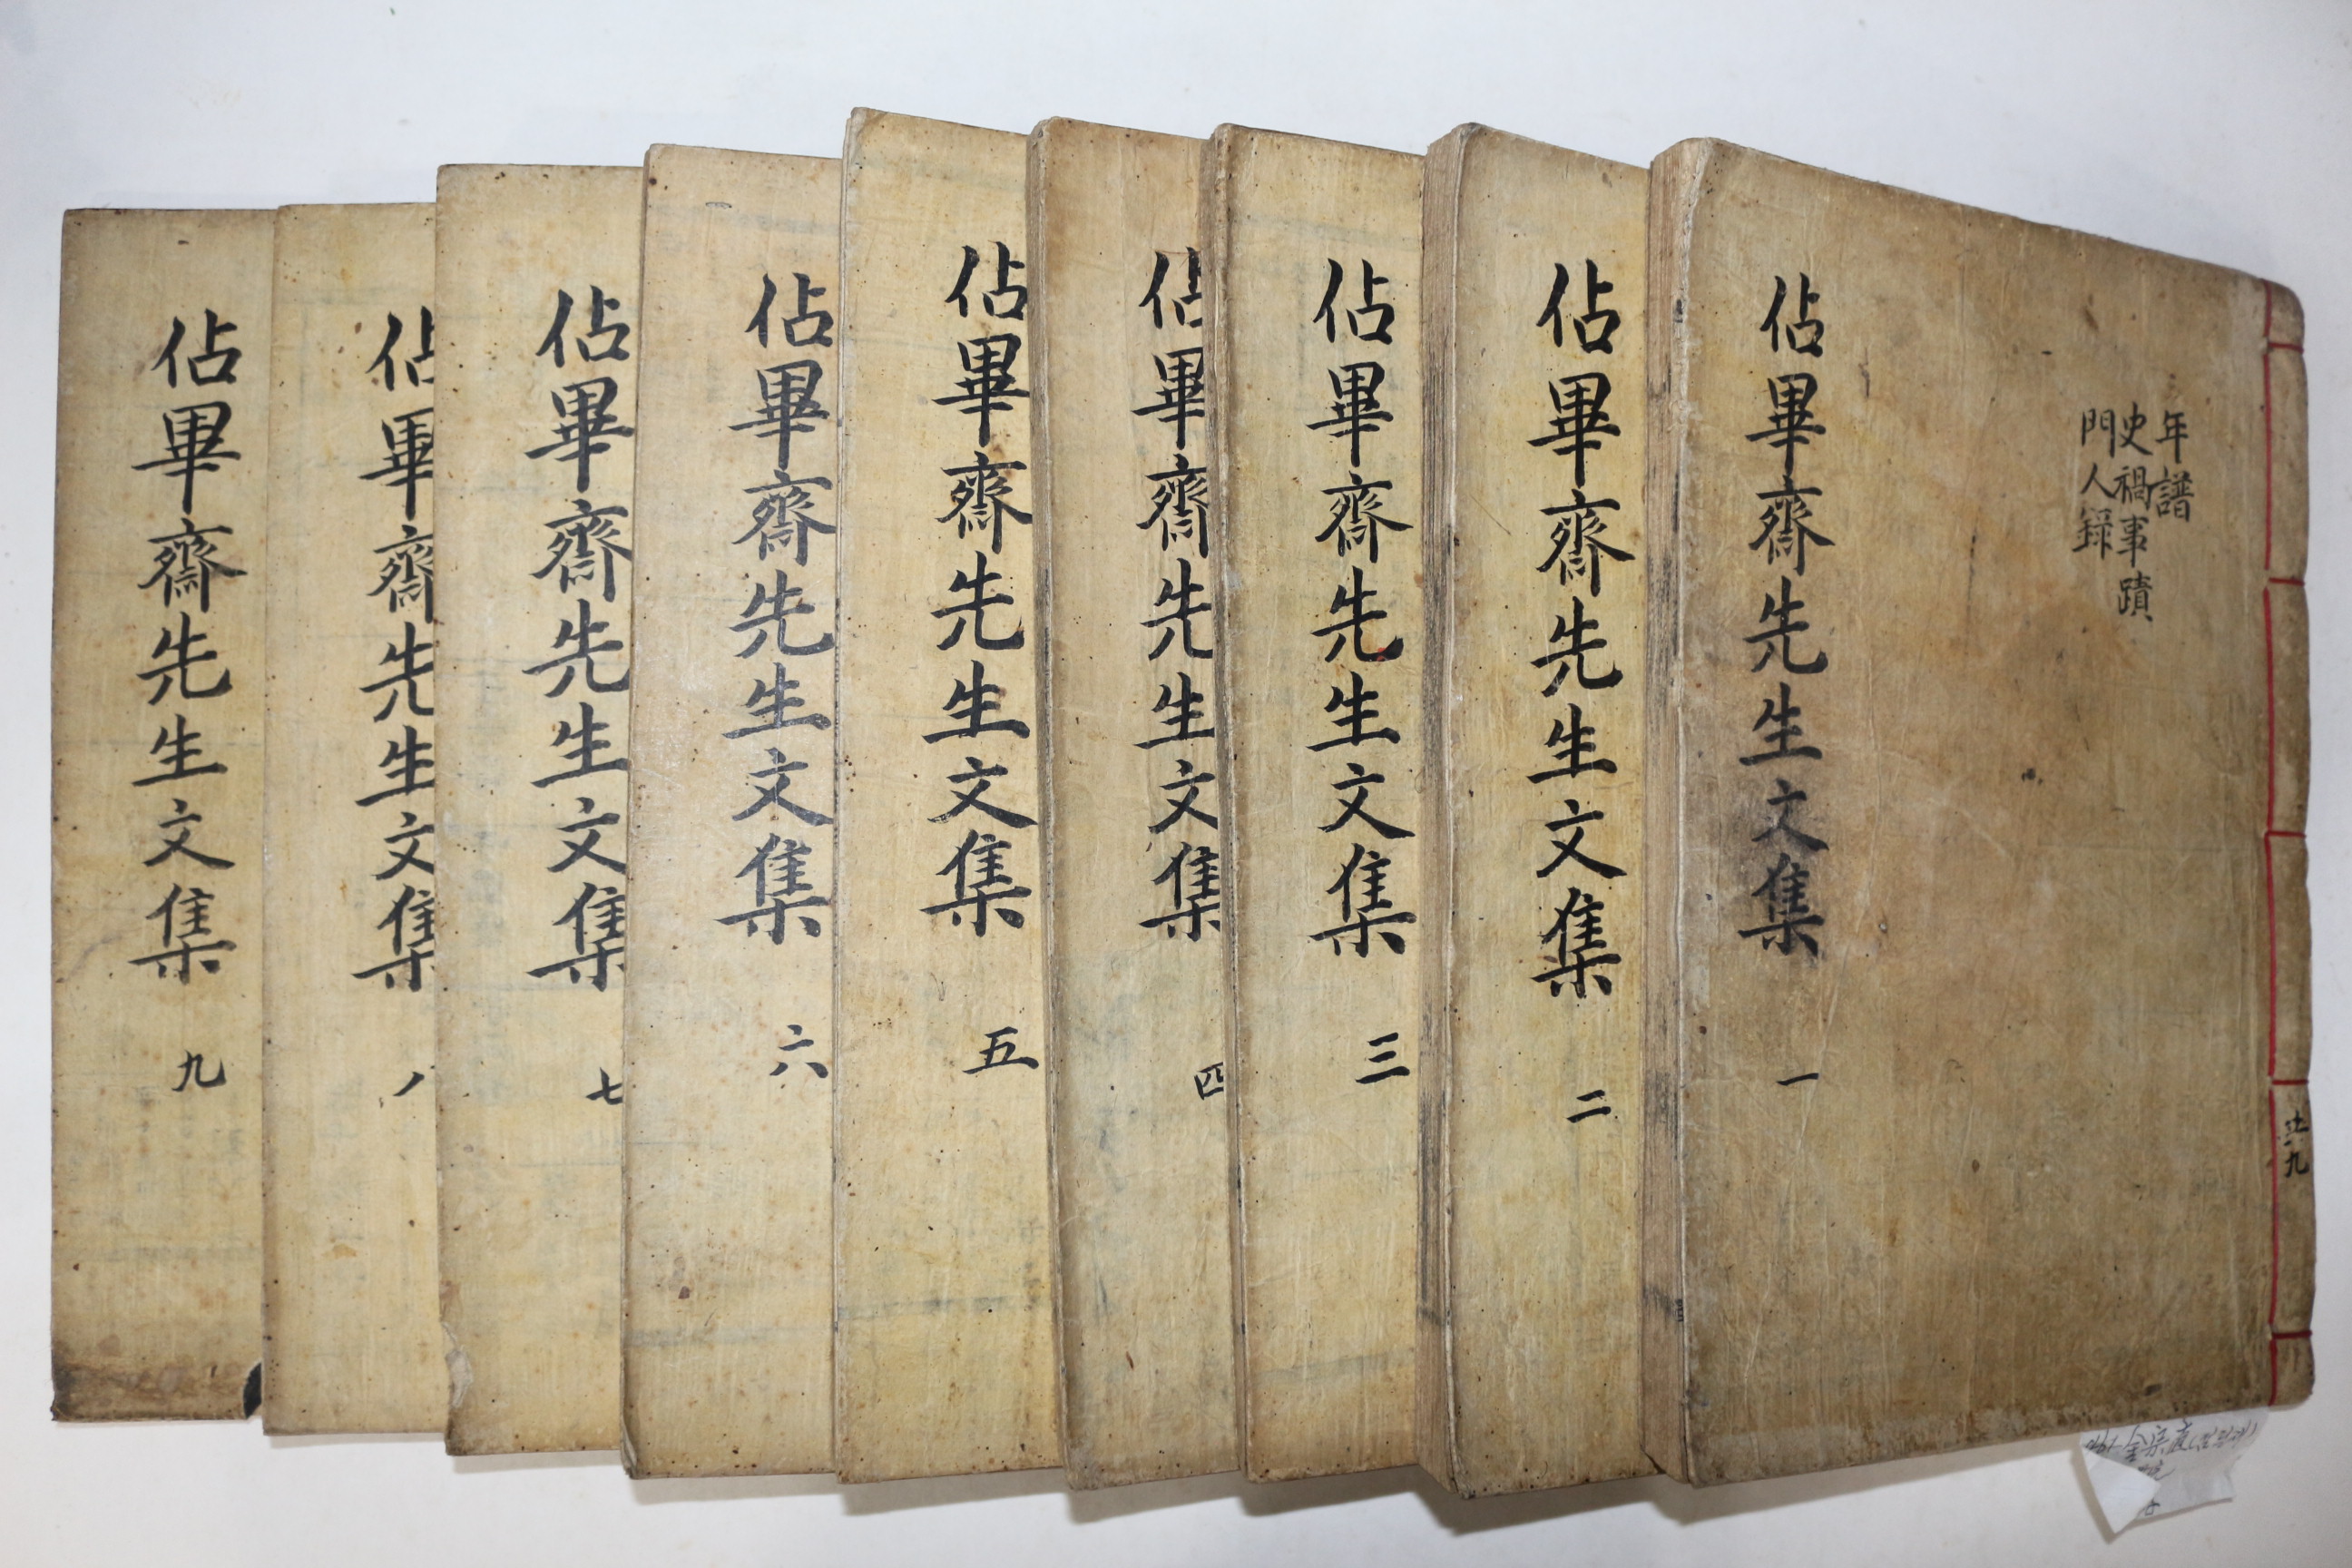 年譜
史禍事蹟
門人録
共九
佔畢齋先生文集 一
佔畢齋先生文集 二
佔畢齋先生文集 三
佔畢齋先生文集 四
佔畢齋先生文集 五
佔畢齋先生文集 六
佔畢齋先生文集 七
佔畢齋先生文集 八
佔畢齋先生文集 九
金宗直